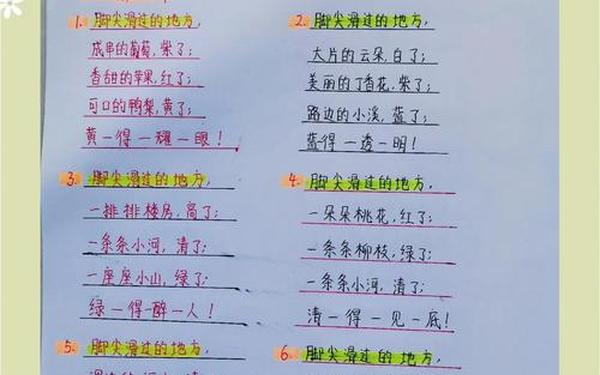 1. 脚尖滑过的地方，
成串的葡萄，紫了；
香甜的苹果，红了；
可口的鸭梨，黄了；
黄—得—耀—眼！
2. 脚尖滑过的地方，
大片的云朵，白了；
美丽的丁香花，紫了；
路边的小溪，蓝了；
蓝得—透—明！
3. 脚尖滑过的地方，
一排排楼房，高了；
一条条小河，清了；
一座座小山，绿了；
绿—得—醉—人！
4. 脚尖滑过的地方，
一朵朵桃花，红了；
一条条柳枝，绿了；
一条条小河，清了；
清—得—见—底！
5. 脚尖滑过的地方，
6. 脚尖滑过的地方，